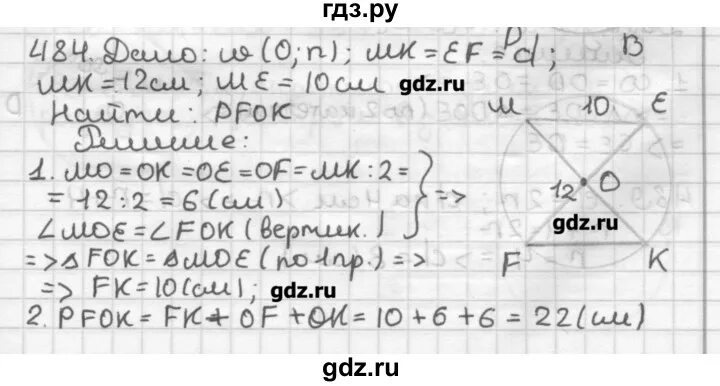 гдз.ру
484. Дано: w (O; r); MK = EF = d;
D
B
MK = 12см; ME = 10см
gdz.ru
Найти: PFOK
Решение:
1. MO = OK = OE = OF = MK : 2 =
= 12 : 2 = 6 (см)
∠MOE = ∠FOK (вертик.)
} =>
=> △FOK = △MOE (по 1 пр.) =>
=> FK = 10 (см);
gdz.ru
2. PFOK = FK + OF + OK = 10 + 6 + 6 = 22 (см)
M 10 E
12 O
gdz.ru
F K
gdz.ru